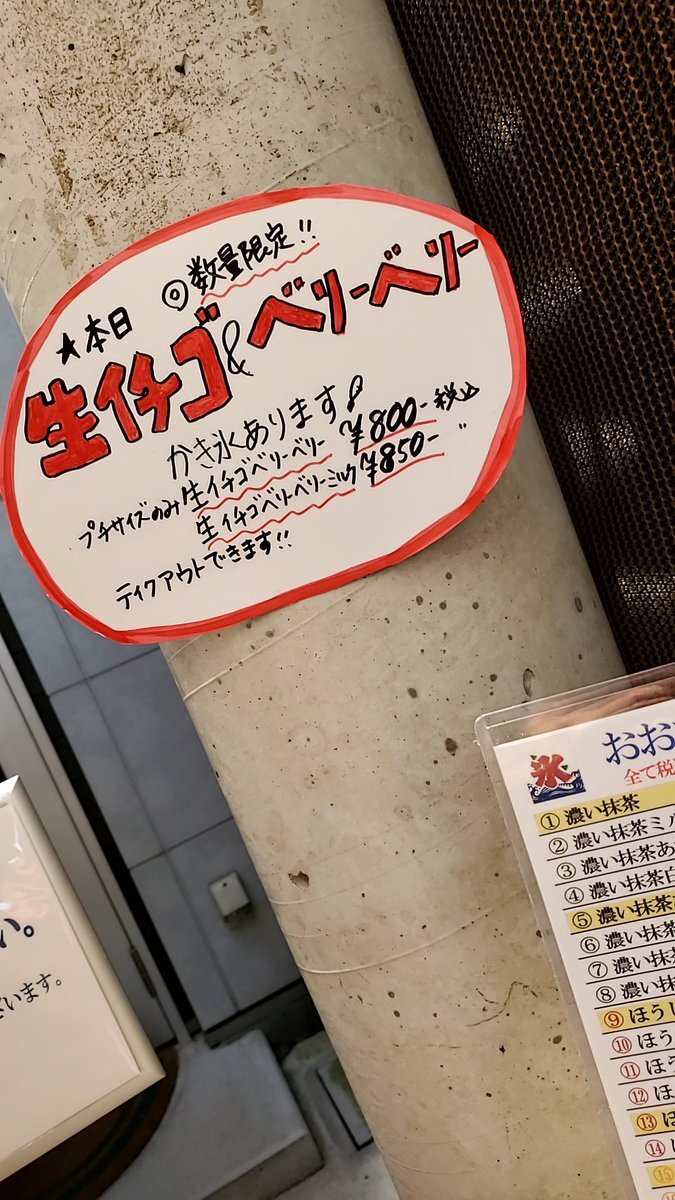 ★本日 ◎数量限定!!
生イチゴ&ベリーベリー
かき氷あります!
プチサイズのみ 生イチゴベリーベリー ¥800-税込
生イチゴベリーベリーミルク ¥850- 〃
テイクアウトできます!!
氷
おお
全て税
①濃い抹茶
②濃い抹茶ミル
③濃い抹茶あ
④濃い抹茶白
⑤濃い抹茶
⑥濃い抹茶
⑦濃い抹茶
⑧濃い抹
⑨ほうじ
⑩ほうじ
⑪ほう
⑫ほ
⑬ほ
⑭ほ
⑮
い。
ざいます。